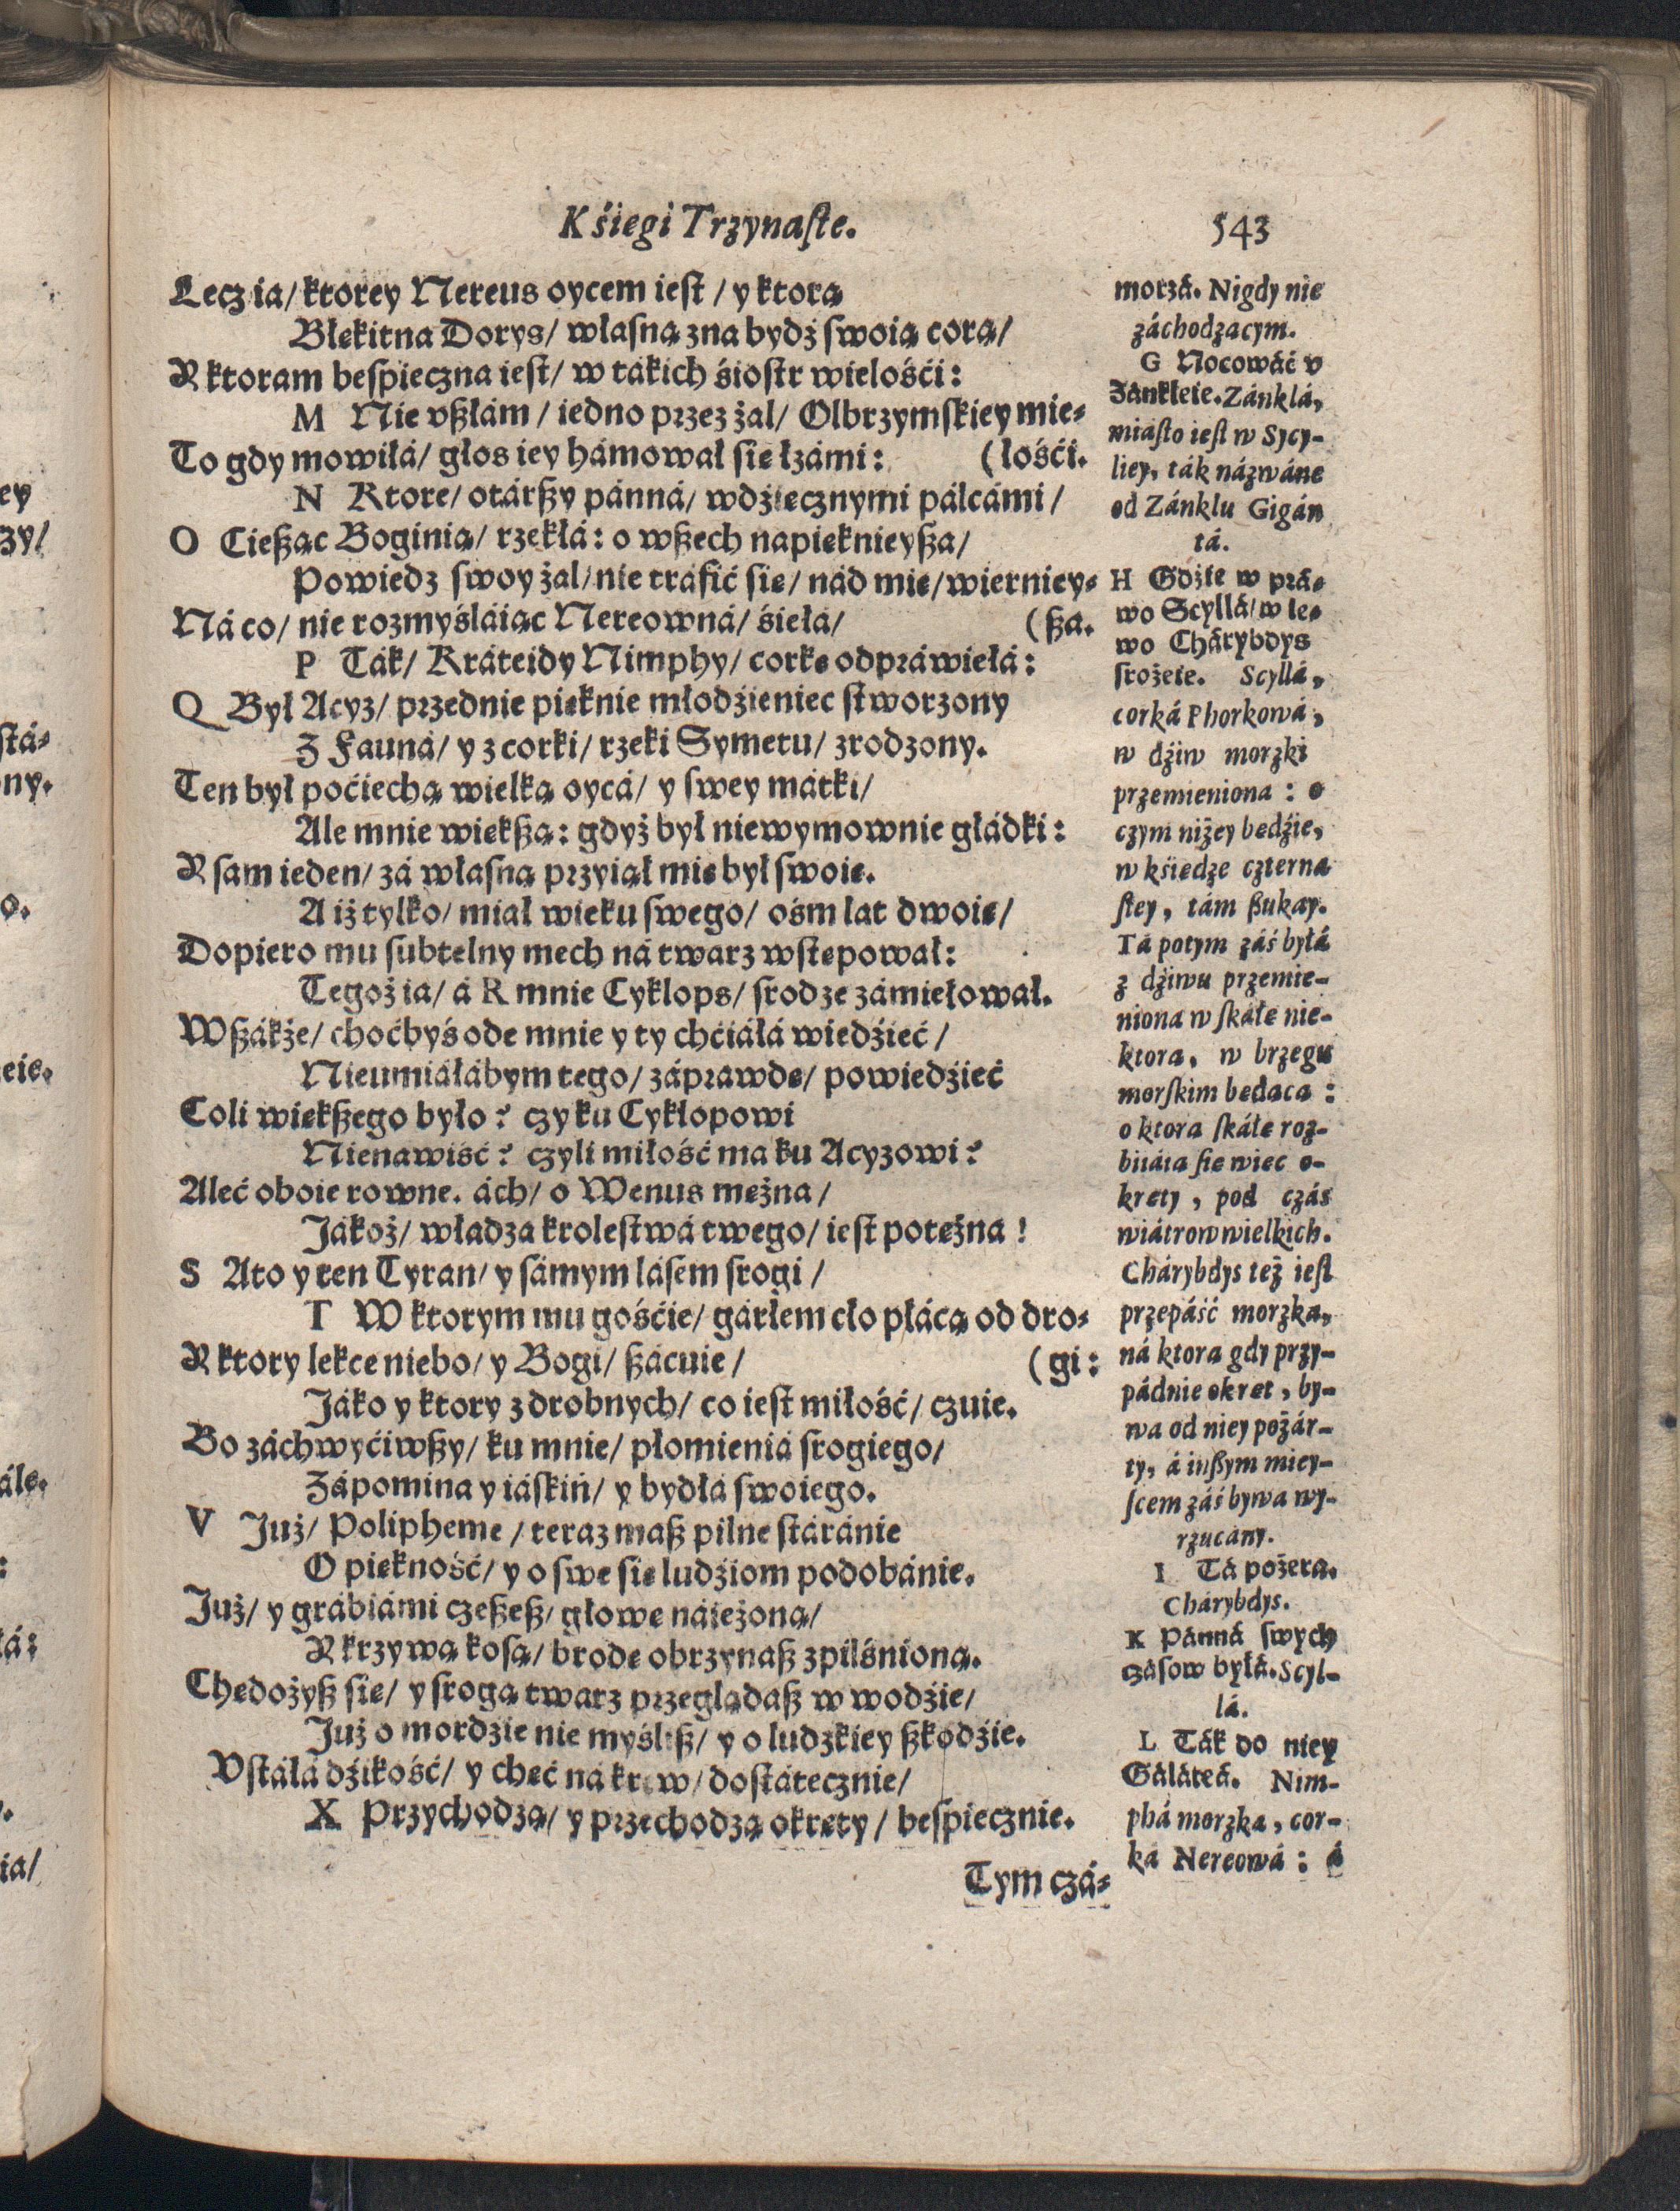 Kśiegi Trzynaſte.
543
Lecz ia/ ktorey Nereus oycem ieſt / y ktorą
Błekitna Dorys/ właſną zna bydź ſwoią corą/
Y ktoram beſpieczna ieſt/ w tákich śioſtr wielośći:
M Nie vßłám / iedno przez żal/ Olbrzymſkiey mie-
To gdy mowiłá/ głos iey hámował ſię łzámi: (łośći.
N Ktore/ otárßy pánná/ wdźięcznymi pálcámi /
O Cießąc Boginią/ rzekłá: o wßech napięknieyßa/
Powiedz ſwoy żal/ nie tráfić ſię/ nád mię/ wierniey-
Ná co/ nie rozmyśláiąc Nereowná/ śiełá/ (ßa.
P Ták/ Kráteidy Nimphy/ corkę odpráwiełá:
Q Był Acyz/ przednie pięknie młodźieniec ſtworzony
Z Fauná/ y z corki/ rzeki Symetu/ zrodzony.
Ten był poćiechą wielką oycá/ y ſwey mátki/
Ale mnie więkßą: gdyż był niewymownie głádki:
Y ſam ieden/ zá właſną przyiął mię był ſwoię.
A iż tylko/ miał wieku ſwego/ ośm lat dwoie/
Dopiero mu ſubtelny mech ná twarz wſtępował:
Tegoż ia/ á R mnie Cyklops/ ſrodze zámiełował.
Wßákże/ choćbyś ode mnie y ty chćiáłá wiedźieć /
Nieumiáłábym tego/ záprawdę/ powiedźieć
Coli więkßego było? czy ku Cykłopowi
Nienawiść? czyli miłość ma ku Acyzowi?
Aleć oboie rowne. ách/ o Wenus mężna /
Jákoż/ władza kroleſtwá twego/ ieſt potężna!
S Ato y ten Tyran/ y ſámym láſem ſrogi /
T W ktorym mu gośćie/ gárłem cło płácą od dro-
Y ktory lekce niebo/ y Bogi/ ßácuie / (gi:
Jáko y ktory z drobnych/ co ieſt miłość/ czuie.
Bo záchwyćiwßy/ ku mnie/ płomieniá ſrogiego/
Zápomina y iáſkiń/ y bydłá ſwoiego.
V Już/ Polipheme / teraz maß pilne ſtáránie
O piękność/ y o ſwe ſię ludźiom podobánie.
Już/ y grábiámi czeßeß/ głowę náieżoną/
Y krzywą koſą/ brodę obrzynaß zpilśnioną.
Chędożyß ſię/ y ſrogą twarz przeglądaß w wodźie/
Już o mordzie nie myśliß/ y o ludzkiey ßkodźie.
Vſtáłá dźikość/ y chęć ná krew/ doſtátecznie/
X Przychodzą/ y przechodzą okręty/ beſpiecznie.
Tym czá-
morzá. Nigdy nie
záchodzącym.
G Nocowáć v
Zánkleie. Zánklá,
miáſto ieſt w Sycy-
liey, ták názwáne
od Zánklu Gigán
tá.
H Gdźie w prá-
wo Scyllá/ w le-
wo Chárybdys
ſrożeie. Scyllá,
corká Phorkowá,
w dźiw morzki
przemieniona: o
czym niżey będźie,
w kśiędze czterna
ſtey, tám ßukay.
Tá potym záś byłá
z dźiwu przemie-
niona w ſkáłę nie-
ktorą, w brzegu
morſkim będącą:
o ktorą ſkáłę roz-
biiáią ſię więc o-
kręty, pod czás
wiátrow wielkich.
Chárybdys też ieſt
przepáść morzka,
ná ktorą gdy przy-
pádnie okręt, by-
wa od niey pożár-
ty, á inßym miey-
ſcem záś bywa wy-
rzucány.
I Tá pożera.
Chárybdys.
K Pánná ſwych
czáſow byłá. Scyl-
lá.
L Ták do niey
Gáláteá. Nim-
phá morzka, cor-
ká Nereowá: á